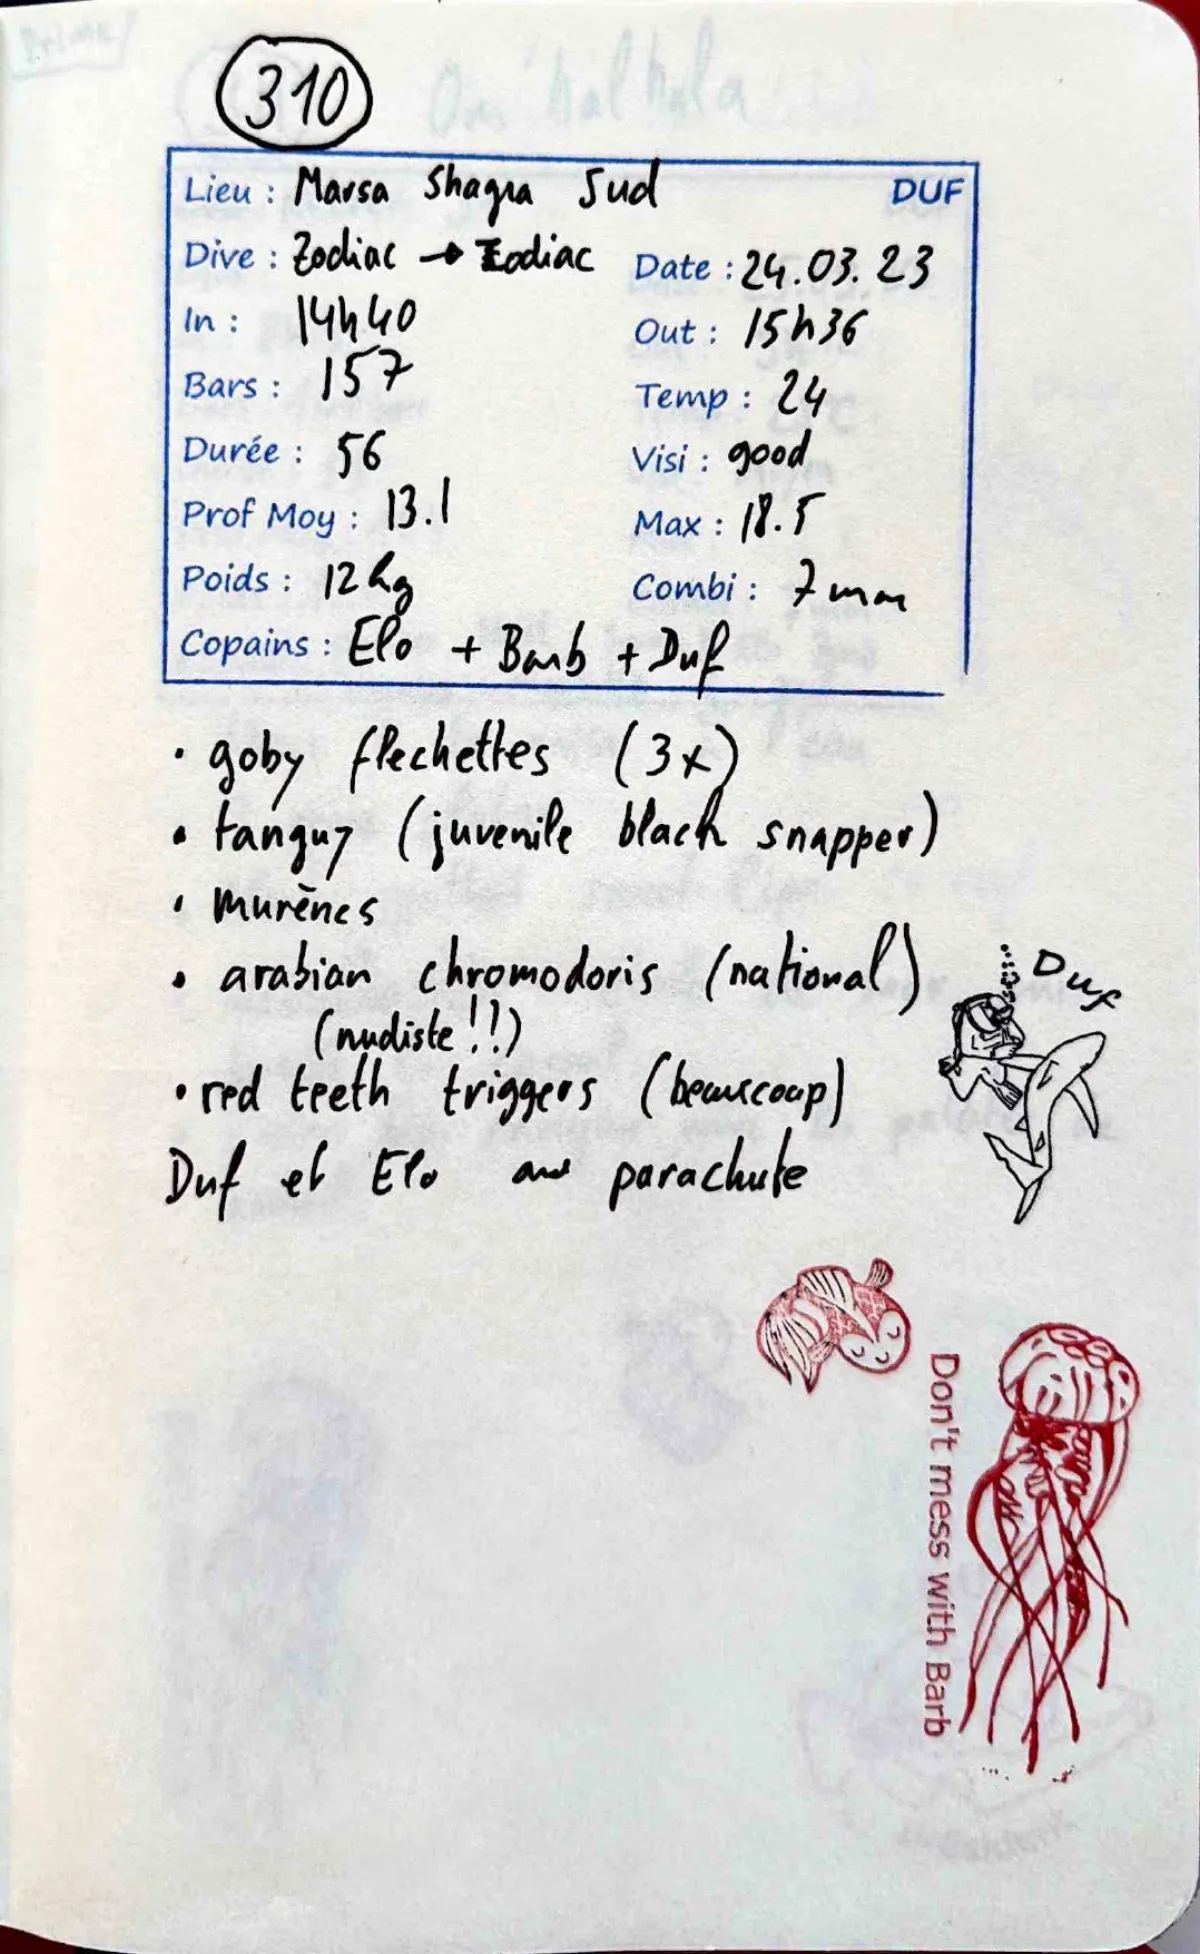 310
Lieu : Marsa Shagra Sud DUF
Dive : Zodiac → Zodiac Date : 24.03.23
In : 14h40 Out : 15h36
Bars : 157 Temp : 24
Durée : 56 Visi : good
Prof Moy : 13.1 Max : 18.5
Poids : 12 kg Combi : 7 mm
Copains : Elo + Barb + Duf
• goby flechettes (3x)
• tanguy (juvenile black snapper)
• murènes
• arabian chromodoris (national)
(nudiste !!)
• red teeth triggers (beaucoup)
Duf et Elo parachute
Duf
Don't mess with Barb